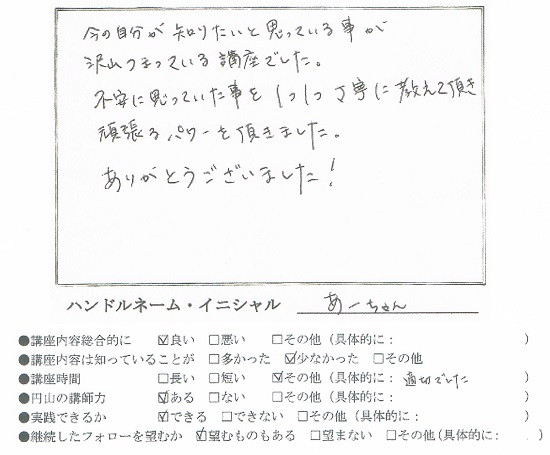 今の自分が知りたいと思っている事が
沢山つまっている講座でした。
不安に思っていた事を1つ1つ丁寧に教えて頂き
頑張るパワーを頂きました。
ありがとうございました!
ハンドルネーム・イニシャル あーちゃん
●講座内容総合的に ☑良い □悪い □その他(具体的に: )
●講座内容は知っていることが □多かった ☑少なかった □その他
●講座時間 □長い □短い ☑その他(具体的に: 適切でした )
●円山の講師力 ☑ある □ない □その他(具体的に: )
●実践できるか ☑できる □できない □その他(具体的に: )
●継続したフォローを望むか ☑望むものもある □望まない □その他(具体的に: )